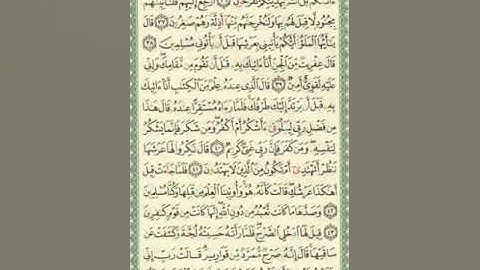 ءَاتَىٰكُم بَلْ أَنتُم بِهَدِيَّتِكُمْ تَفْرَحُونَ ٣٦ ٱرْجِعْ إِلَيْهِمْ فَلَنَأْتِيَنَّهُم
بِجُنُودٍ لَّا قِبَلَ لَهُم بِهَا وَلَنُخْرِجَنَّهُم مِّنْهَآ أَذِلَّةً وَهُمْ صَٰغِرُونَ ٣٧ قَالَ
يَٰٓأَيُّهَا ٱلْمَلَؤُا۟ أَيُّكُمْ يَأْتِينِى بِعَرْشِهَا قَبْلَ أَن يَأْتُونِى مُسْلِمِينَ ٣٨
قَالَ عِفْرِيتٌ مِّنَ ٱلْجِنِّ أَنَا۠ ءَاتِيكَ بِهِۦ قَبْلَ أَن تَقُومَ مِن مَّقَامِكَ وَإِنِّى
عَلَيْهِ لَقَوِىٌّ أَمِينٌ ٣٩ قَالَ ٱلَّذِى عِندَهُۥ عِلْمٌ مِّنَ ٱلْكِتَٰبِ أَنَا۠ ءَاتِيكَ
بِهِۦ قَبْلَ أَن يَرْتَدَّ إِلَيْكَ طَرْفُكَ فَلَمَّا رَءَاهُ مُسْتَقِرًّا عِندَهُۥ قَالَ هَٰذَا
مِن فَضْلِ رَبِّى لِيَبْلُوَنِىٓ ءَأَشْكُرُ أَمْ أَكْفُرُ وَمَن شَكَرَ فَإِنَّمَا يَشْكُرُ
لِنَفْسِهِۦ وَمَن كَفَرَ فَإِنَّ رَبِّى غَنِىٌّ كَرِيمٌ ٤٠ قَالَ نَكِّرُوا۟ لَهَا عَرْشَهَا
نَنظُرْ أَتَهْتَدِىٓ أَمْ تَكُونُ مِنَ ٱلَّذِينَ لَا يَهْتَدُونَ ٤١ فَلَمَّا جَآءَتْ قِيلَ
أَهَٰكَذَا عَرْشُكِ قَالَتْ كَأَنَّهُۥ هُوَ وَأُوتِينَا ٱلْعِلْمَ مِن قَبْلِهَا وَكُنَّا مُسْلِمِينَ
٤٢ وَصَدَّهَا مَا كَانَت تَّعْبُدُ مِن دُونِ ٱللَّهِ إِنَّهَا كَانَتْ مِن قَوْمٍ كَٰفِرِينَ
٤٣ قِيلَ لَهَا ٱدْخُلِى ٱلصَّرْحَ فَلَمَّا رَأَتْهُ حَسِبَتْهُ لُجَّةً وَكَشَفَتْ عَن
سَاقَيْهَا قَالَ إِنَّهُۥ صَرْحٌ مُّمَرَّدٌ مِّن قَوَارِيرَ قَالَتْ رَبِّ إِنِّى